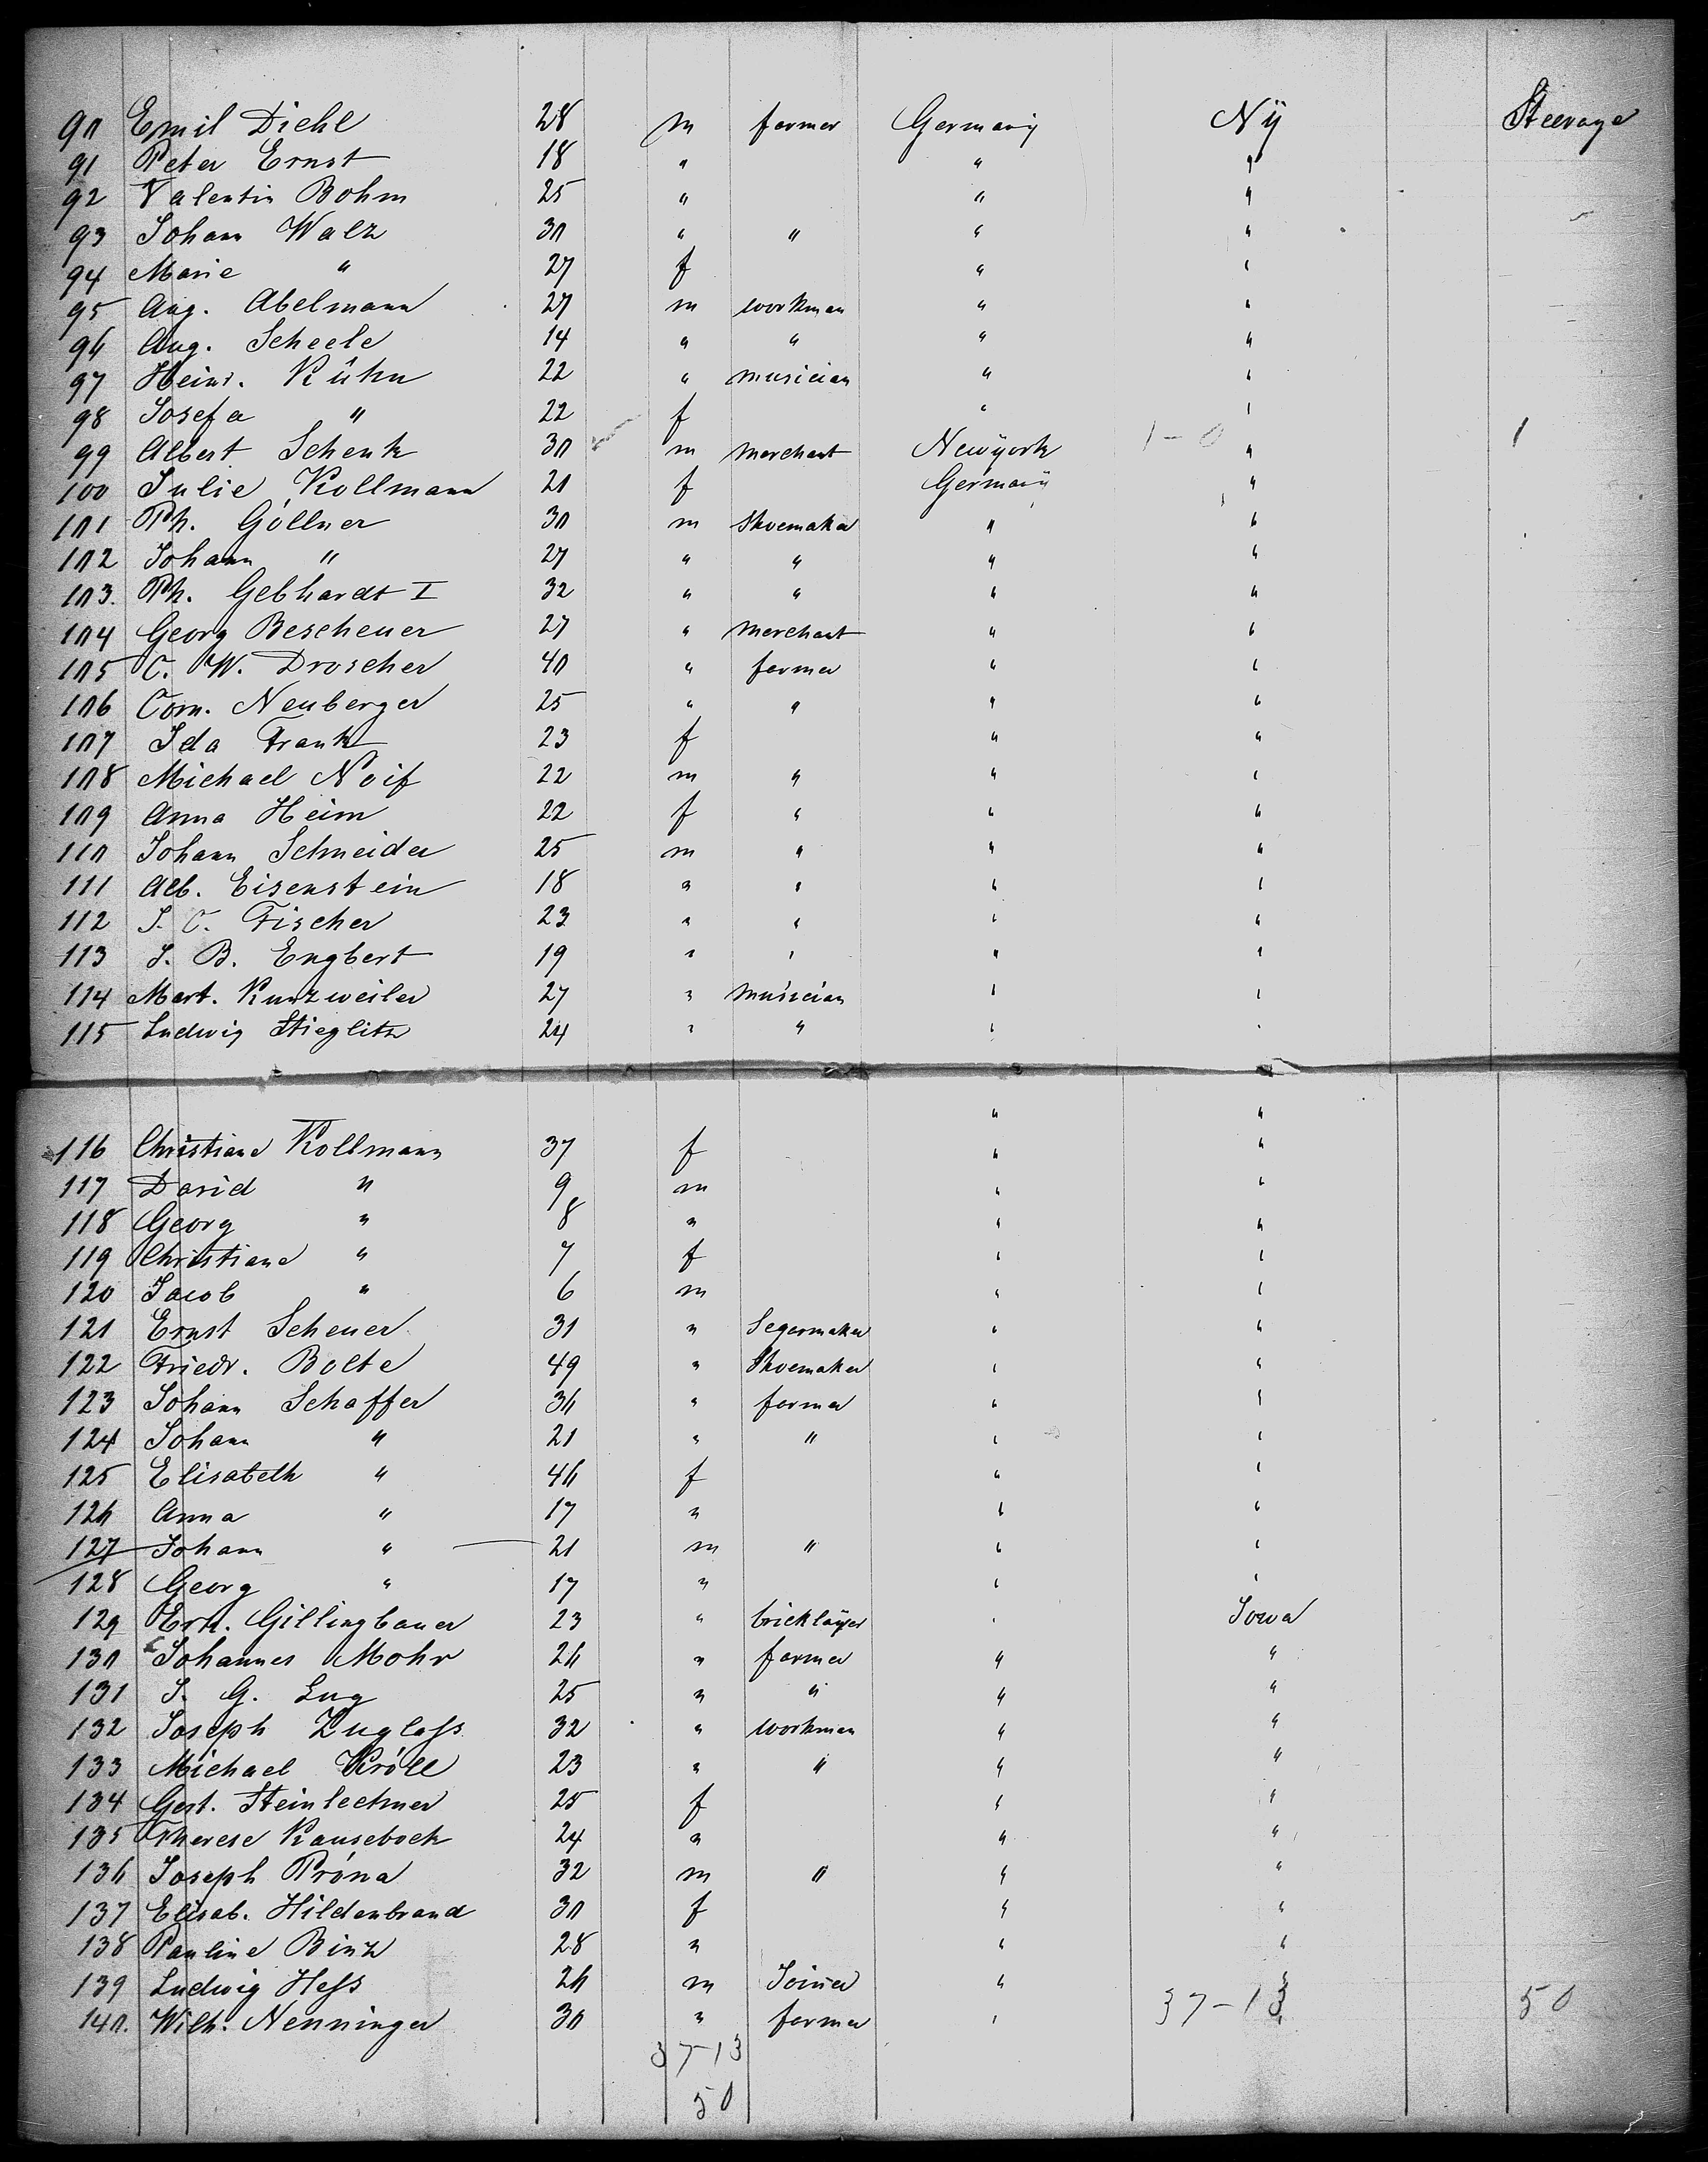 90 Emil Diehl 28 m farmer Germany Ny Steerage
91 Peter Ernst 18 " " "
92 Valentin Bohm 25 " " "
93 Johann Walz 30 " " " "
94 Marie " 27 f " "
95 Aug. Abelmann 27 m workman " "
96 Aug. Scheele 14 " " " "
97 Heinr. Kühn 22 " musician " "
98 Josefa " 22 f " "
99 Albert Schenk 30 ✓ m merchant Newyork 1-0 " 1
100 Julie Kollmann 21 f Germany "
101 Ph. Göllner 30 m Shoemaker " "
102 Johann " 27 " " " "
103. Ph. Gebhardt I 32 " " " "
104 Georg Bescheuer 27 " merchant " "
105 C. W. Droscher 40 " farmer " "
106 Corn. Neuberger 25 " " " "
107 Ida Frank 23 f " "
108 Michael Noif 22 m " " "
109 Anna Heim 22 f " " "
110 Johann Schneider 25 m " " "
111 Alb. Eisenstein 18 " " " "
112 J. C. Fischer 23 " " " "
113 J. B. Engbert 19 " " " "
114 Mart. Kunzweiler 27 " musician " "
115 Ludwig Stieglitz 24 " " " "
" "
116 Christiane Kollmann 37 f " "
117 David " 9 m " "
118 Georg " 8 " " "
119 Christiane " 7 f " "
120 Jacob " 6 m " "
121 Ernst Scheuer 31 " Segarmaker " "
122 Friedr. Bolte 49 " Shoemaker " "
123 Johann Schaffer 36 " farmer " "
124 Johann " 21 " " " "
125 Elisabeth " 46 f " "
126 Anna " 17 " " "
127 Johann " 21 m " " "
128 Georg " 17 " " "
129 Erh. Gillingbauer 23 " bricklayer " Iowa
130 Johannes Mohr 26 " farmer " "
131 J. G. Lug 25 " " " "
132 Joseph Zuglass 32 " workman " "
133 Michael Kröll 23 " " " "
134 Gert. Steinlechner 25 f " "
135 Therese Kausebock 24 " " "
136 Joseph Pröna 32 m " " "
137 Elisab. Hildenbrand 30 f " "
138 Pauline Binz 28 " " "
139 Ludwig Hess 26 m Joiner " "
140. Wilh. Nenninger 30 " farmer " 37-13 " 50
37-13
50